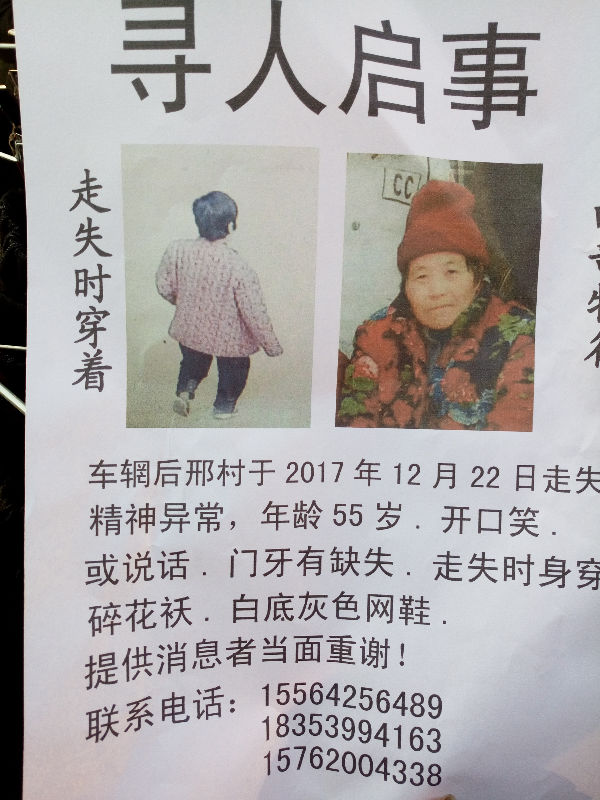 寻人启事
走失时穿着
CC
车辋后邢村于 2017 年 12 月 22 日走失
精神异常，年龄 55 岁．开口笑．
或说话．门牙有缺失．走失时身穿
碎花袄．白底灰色网鞋．
提供消息者当面重谢！
联系电话：15564256489
18353994163
15762004338